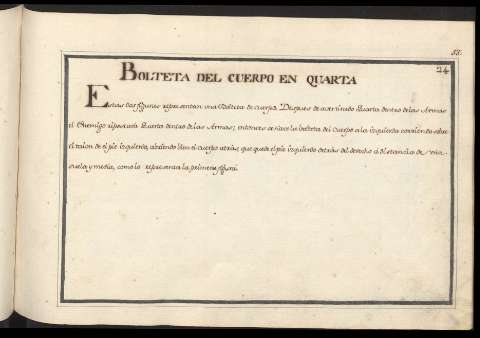 53.
24
BOLTETA DEL CUERPO EN QUARTA
Estas dos figuras representan una Bolteta de cuerpo. Despues de haver tirado Quarta dentro de las Armas
el Enemigo repostará Quarta dentro de las Armas; entonces se hace la bolteta del cuerpo a la izquierda sobre
el talon de el pie izquierdo, abriendo bien el cuerpo atrás, que quede el pie izquierdo detrás del derecho á distancia de una
suela y media, como lo representa la primera figura.